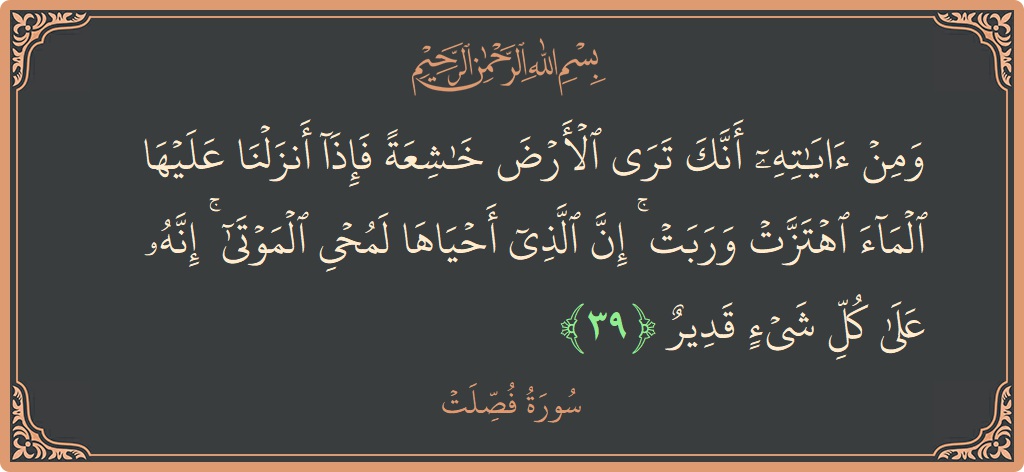 بِسْمِ اللهِ الرَّحْمٰنِ الرَّحِيْمِ
وَمِنْ ءَايَـٰتِهِۦٓ أَنَّكَ تَرَى ٱلْأَرْضَ خَـٰشِعَةً فَإِذَآ أَنزَلْنَا عَلَيْهَا
ٱلْمَآءَ ٱهْتَزَّتْ وَرَبَتْ ۚ إِنَّ ٱلَّذِىٓ أَحْيَاهَا لَمُحْىِ ٱلْمَوْتَىٰٓ ۚ إِنَّهُۥ
عَلَىٰ كُلِّ شَىْءٍ قَدِيرٌ ﴿٣٩﴾
سُورَةُ فُصِّلَتْ